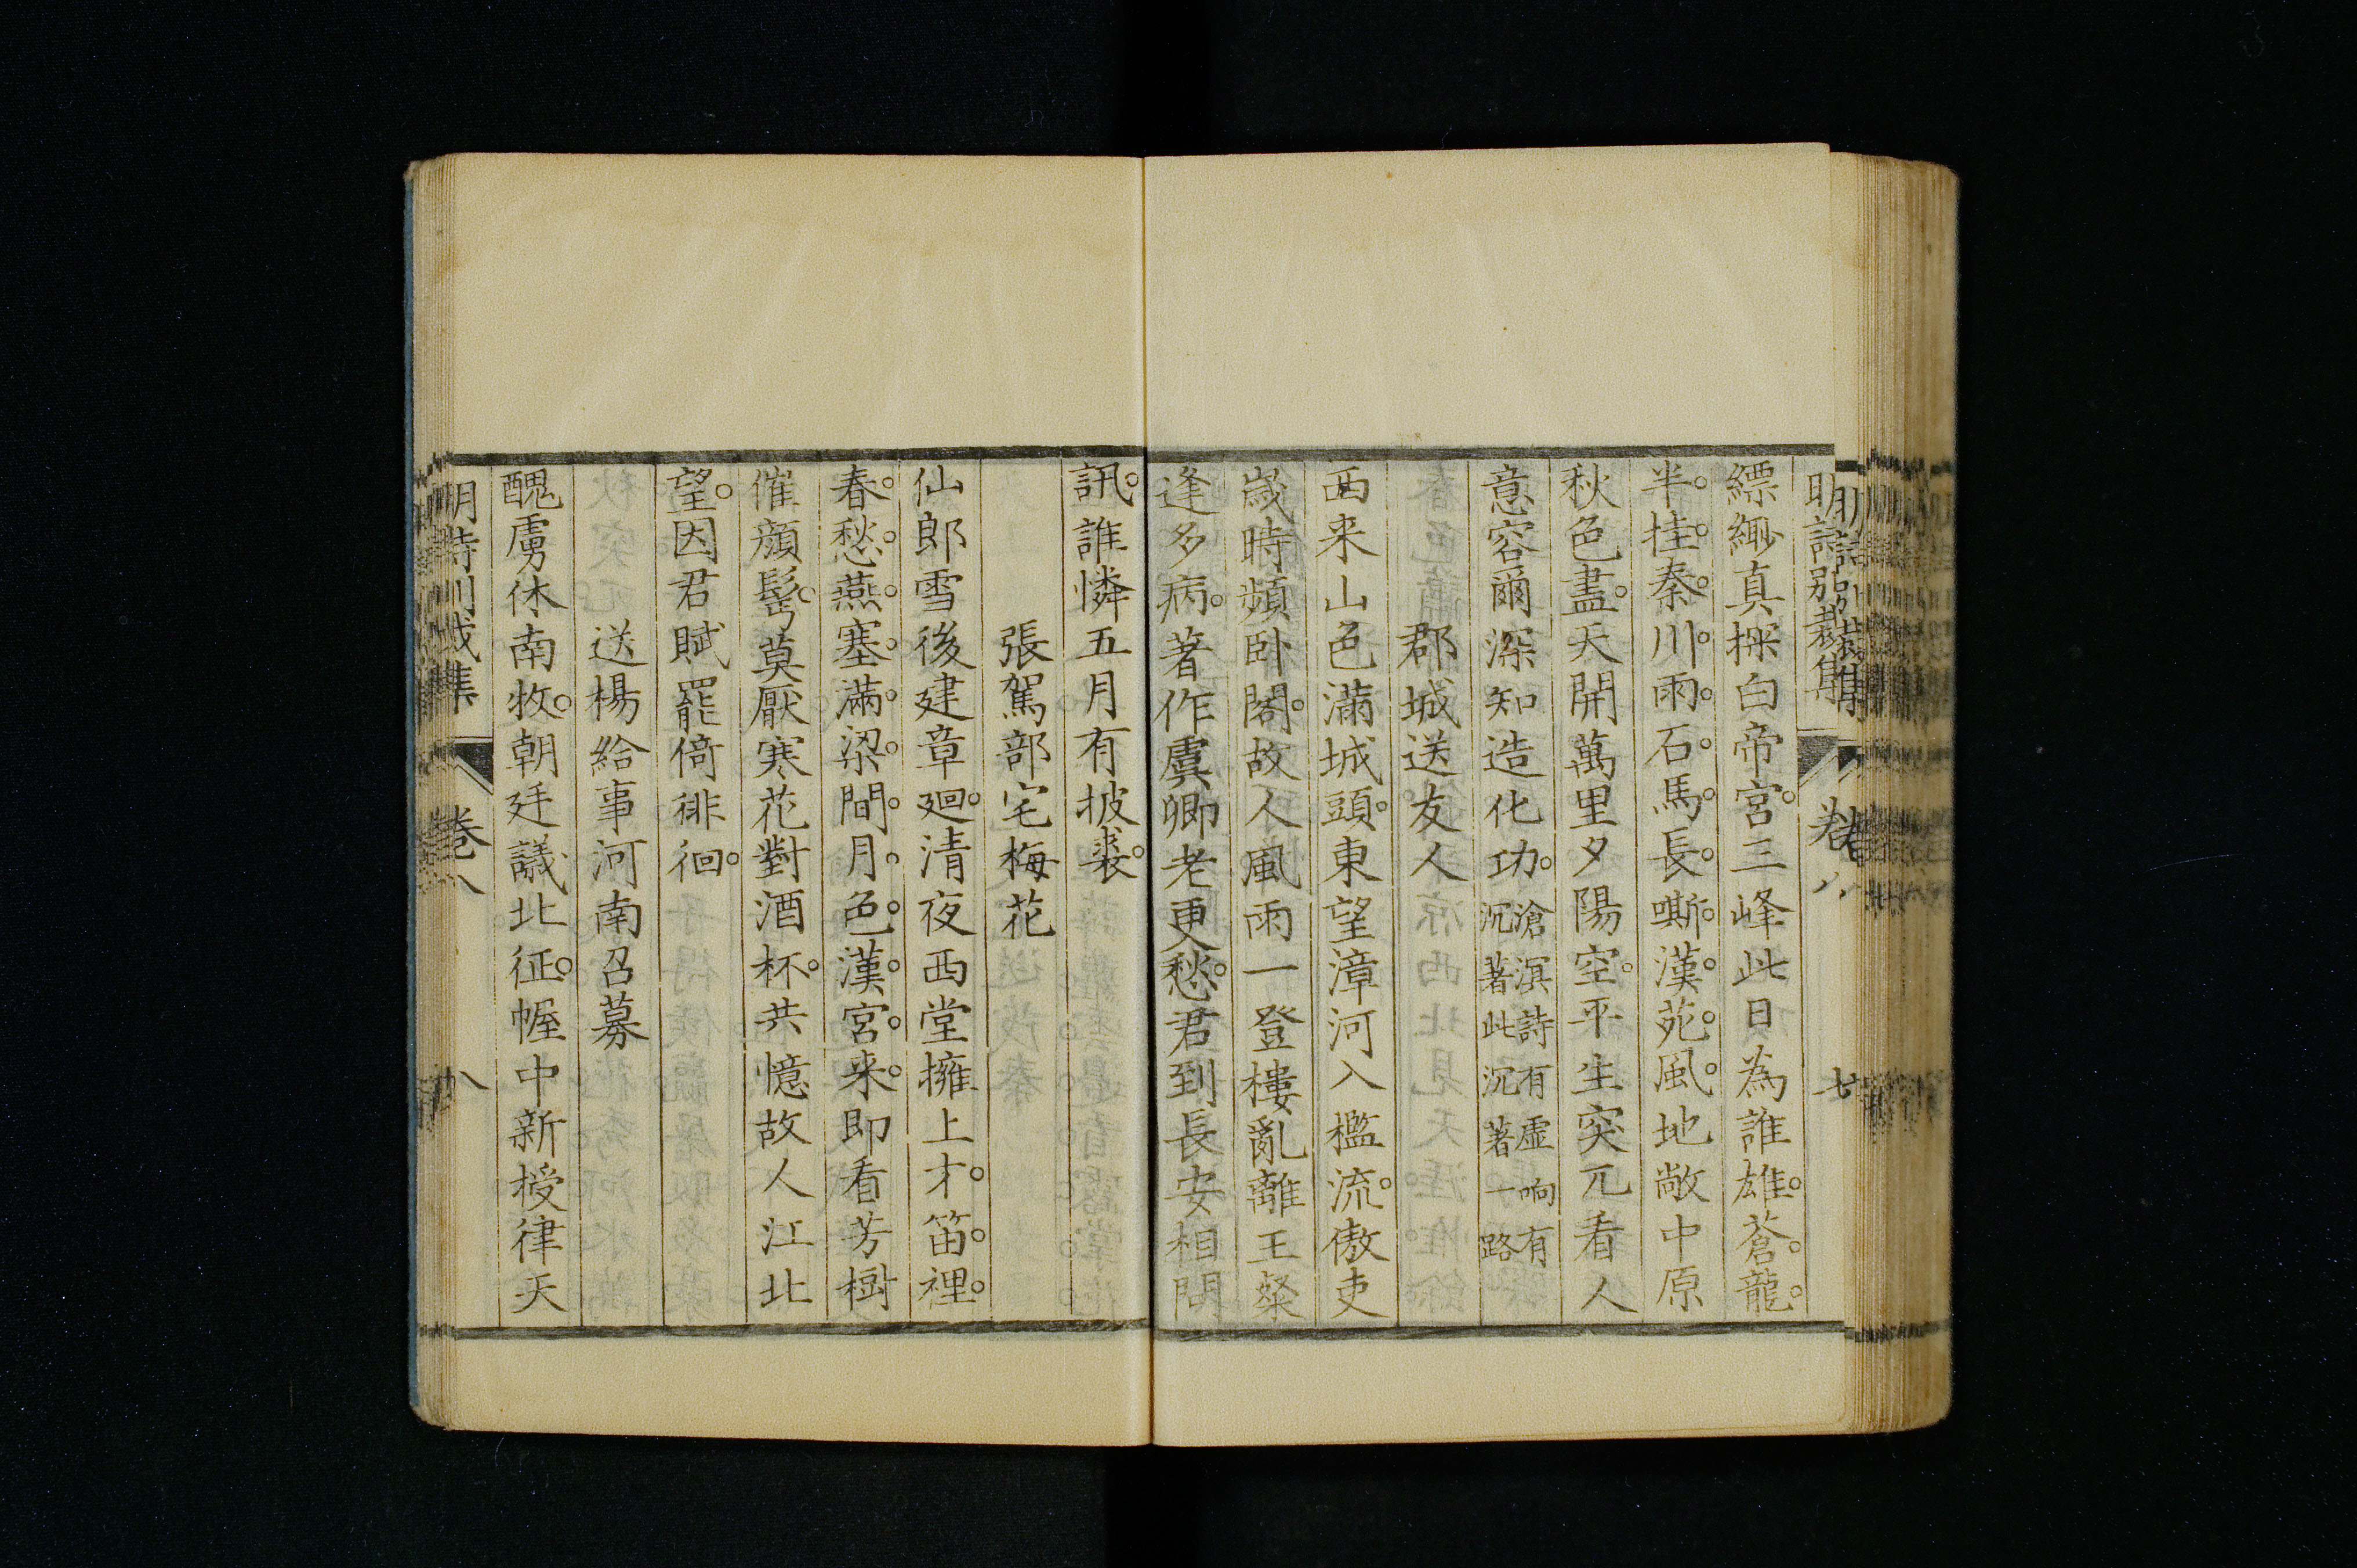 明詩別裁集 卷八 七
縹緲真探白帝宮。三峰此日為誰雄。蒼。龍。
半。挂。秦。川。雨。石。馬。長。嘶。漢。苑。風。地敞中原
秋色盡。天開萬里夕陽空。平生突兀看人
意容爾深知造化功。滄溟詩有虛响有沉著此沉著一路
郡城送友人
西来山色滿城頭。東望漳河入檻流。傲吏
歲時頻卧閣。故人風雨一登樓亂離王粲
逢多病。著作虞卿老更愁。君到長安相問
訊。誰憐五月有披裘。
張駕部宅梅花
仙郎雪後建章廻。清夜西堂擁上才。笛。裡。
春。愁。燕。塞。滿。梁。間。月。色。漢。宮。来。即看芳樹
催顔髩。莫厭寒花對酒杯。共憶故人江北
望。因君賦罷倚徘徊。
送楊給事河南召募
醜虜休南牧。朝廷議北征。幄中新授律天
明詩別裁集 卷八 八